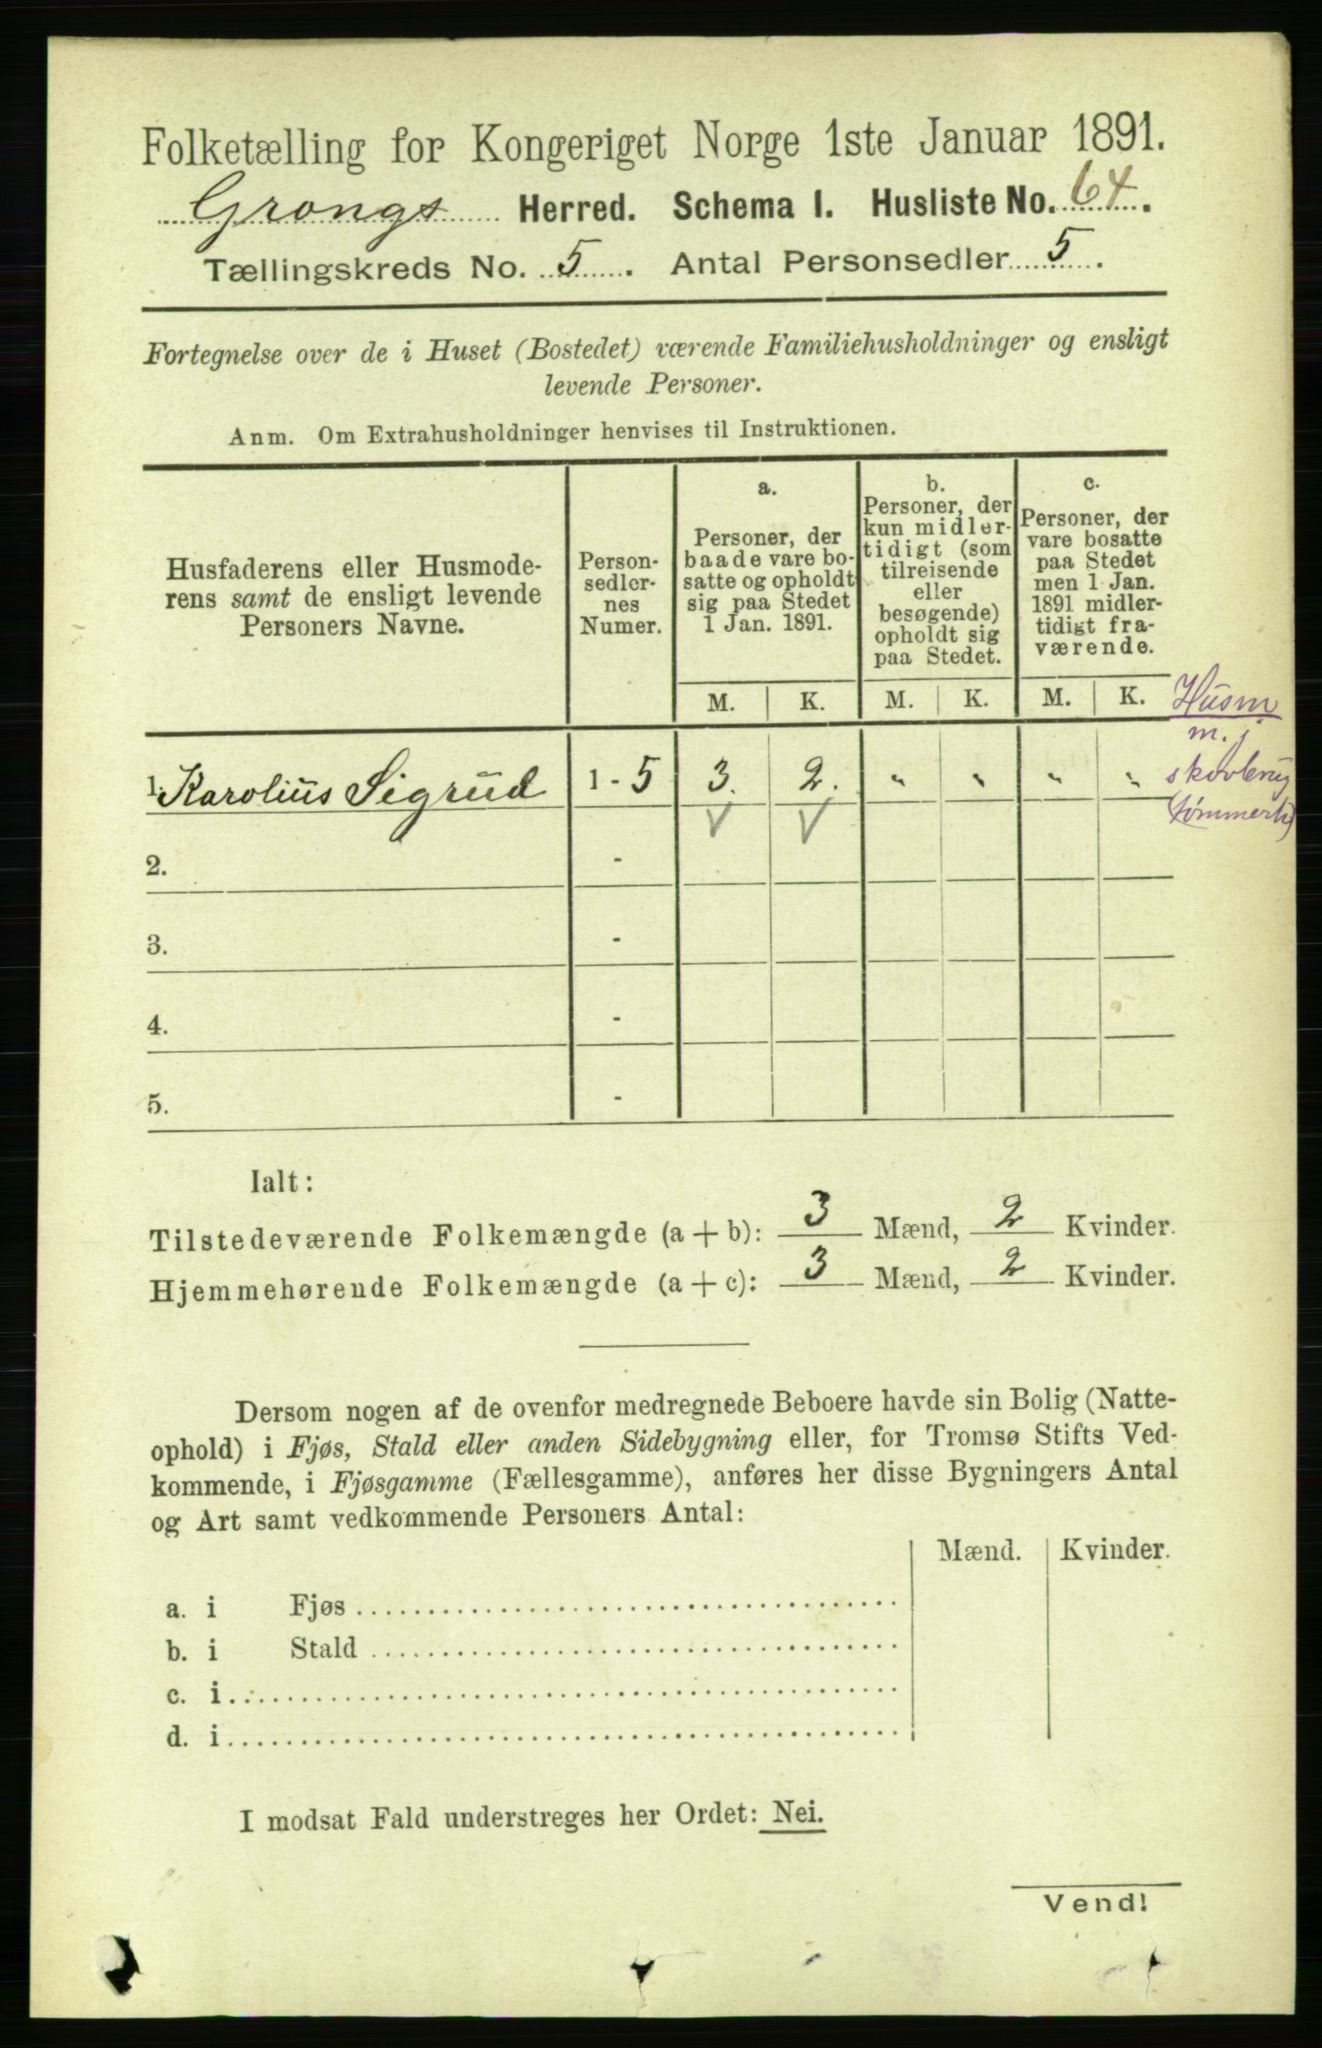 Folketælling for Kongeriget Norge 1ste Januar 1891.
Grongs Herred. Schema I. Husliste No. 64.
Tællingskreds No. 5. Antal Personsedler 5.
Fortegnelse over de i Huset (Bostedet) værende Familiehusholdninger og ensligt
levende Personer.
Anm. Om Extrahusholdninger henvises til Instruktionen.
Husfaderens eller Husmode-
rens samt de ensligt levende
Personers Navne.
Person-
sedler-
nes
Numer.
a.
Personer, der
baade vare bo-
satte og opholdt
sig paa Stedet
1 Jan. 1891.
b.
Personer, der
kun midler-
tidigt (som
tilreisende
eller
besøgende)
opholdt sig
paa Stedet.
c.
Personer, der
vare bosatte
paa Stedet
men 1 Jan.
1891 midler-
tidigt fra-
værende.
M. K. M. K. M. K.
Husm
m. j
skovbrug
(tømmerh)
1. Karolius Sigrud 1 - 5 3. 2. " " " "
V V
2. -
3. -
4. -
5. -
Ialt:
Tilstedeværende Folkemængde (a + b): 3 Mænd, 2 Kvinder.
Hjemmehørende Folkemængde (a + c): 3 Mænd, 2 Kvinder.
Dersom nogen af de ovenfor medregnede Beboere havde sin Bolig (Natte-
ophold) i Fjøs, Stald eller anden Sidebygning eller, for Tromsø Stifts Ved-
kommende, i Fjøsgamme (Fællesgamme), anføres her disse Bygningers Antal
og Art samt vedkommende Personers Antal:
Mænd. Kvinder.
a. i Fjøs
b. i Stald
c. i
d. i
I modsat Fald understreges her Ordet: Nei.
Vend!